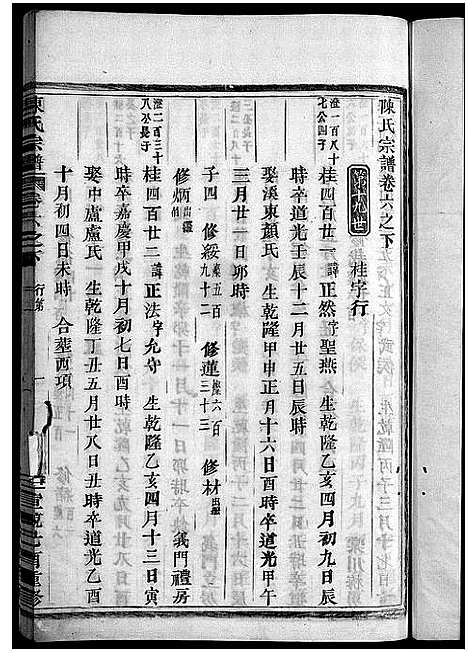 陳氏宗譜卷六之下
桂字行
澄一百八十七公四子
桂四百廿一 諱正然 字聖燕 生乾隆乙亥四月初九日辰
時卒道光壬辰十二月廿五日辰時
娶溪東顏氏 生乾隆甲申正月十六日酉時卒道光甲午
三月廿一日卯時
子四 修綏 槺五百九十二 修蓮 槺六百三十三 修材 出繼
修炳 出繼 義門禮房
澄二百三十八公長子
桂四百廿二 諱正法 字允守 生乾隆乙亥四月十三日寅
時卒嘉慶甲戌十月初七日酉時
娶中盧盧氏 生乾隆丁丑五月廿八日丑時卒道光乙酉
十月初四日未時 合葬西項
陳氏宗譜 卷六之下 行第 一 宣統元酉重修